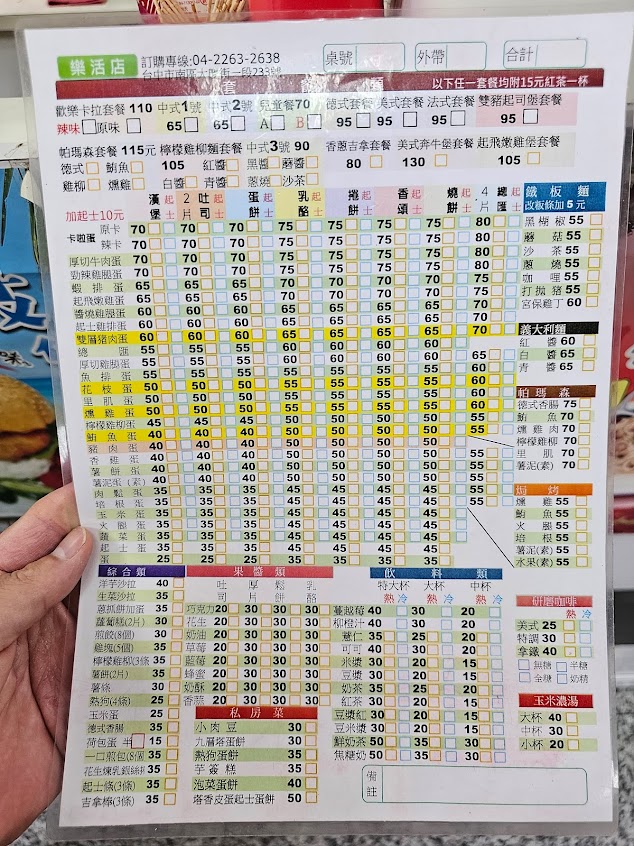 樂活店
訂購專線:04-2263-2638
台中市南區大慶街一段233號
桌號
外帶
合計
套餐類
以下任一套餐均附15元紅茶一杯
歡樂卡拉套餐 110 中式1號 中式2號 兒童餐70 德式套餐 美式套餐 法式套餐 雙豬起司堡套餐
辣味 原味 65 65 A B 95 95 95 95
帕瑪森套餐 115元 檸檬雞柳麵套餐 中式3號 90 香蔥吉拿套餐 美式奔牛堡套餐 起飛嫩雞堡套餐
德式 鮪魚 105 紅醬 黑醬 蘑醬 80 130 105
雞柳 燻雞 白醬 青醬 蔥燒 沙茶
加起士10元
漢堡 起士 2片 吐司 起士 蛋餅 起士 乳酪 捲餅 起士 香頌 起士 燒餅 起士 4片 總匯 起士
卡啦蛋
原卡 70 70 70 75 75 75 75 80
辣卡 70 70 70 75 75 75 75 80
厚切牛肉蛋 70 70 70 75 75 75 75 80
勁辣雞腿蛋 70 70 70 75 75 75 75 80
蝦排蛋 65 65 65 70 70 70 70 75
起飛嫩雞蛋 65 65 65 70 70 70 70 75
醬燒雞腿蛋 60 60 60 65 65 65 65 70
起士雞排蛋 60 60 60 65 65 65 65 70
雙層豬肉蛋 60 60 60 65 65 65 65 70
總匯 55 55 55 60 60 60 60
厚切雞腿蛋 55 55 55 60 60 60 60 65
魚排蛋 55 55 55 60 60 60 60 65
花枝蛋 50 50 50 55 55 55 55 60
里肌蛋 50 50 50 55 55 55 55 60
燻雞蛋 50 50 50 55 55 55 55 60
檸檬雞柳蛋 45 45 45 50 50 50 50 55
鮪魚蛋 40 40 40 50 50 50 50 55
豬肉蛋 40 40 40 50 50 50 50
香雞蛋 40 40 40 50 50 50 50 55
薯餅蛋 40 40 40 50 50 50 50 55
薯泥蛋(素) 40 40 40 50 50 50 50 55
肉鬆蛋 35 35 35 45 45 45 45 55
培根蛋 35 35 35 45 45 45 45 55
玉米蛋 35 35 35 45 45 45 45
火腿蛋 35 35 35 45 45 45 45
蔬菜蛋 35 35 35 45 45 45 45
起士蛋 35 35 35 45 45 45 45
蛋 25 25 25 35 35 35 35
鐵板麵
改板條加5元
黑胡椒 55
蘑菇 55
沙茶 55
蔥燒 55
咖哩 55
打拋豬 55
宮保雞丁 60
義大利麵
紅醬 60
白醬 65
青醬 65
帕瑪森
德式香腸 75
鮪魚 70
燻雞肉 70
檸檬雞柳 70
里肌 70
薯泥(素) 70
焗烤
燻雞 55
鮪魚 55
火腿 55
培根 55
薯泥(素) 55
水果(素) 55
綜合類
洋芋沙拉 40
生菜沙拉 35
蔥抓餅加蛋 35
蘿蔔糕(2片) 30
煎餃(8個) 30
雞塊(5個) 35
檸檬雞柳(3條 35
薯餅(2片) 35
薯條 30
熱狗(4條) 25
玉米蛋 25
德式香腸 35
荷包蛋 半 15
一口煎包(8個 35
花生煉乳銀絲 35
起士條(3條) 35
吉拿棒(3條) 35
果醬類
吐司 厚片 鬆餅 乳酪
巧克力 20 30 30 30
花生 20 30 30 30
奶油 20 30 30 30
草莓 20 30 30 30
藍莓 20 30 30 30
蜂蜜 20 30 30 30
奶酥 20 30 30 30
香蒜 20 30 30 30
私房菜
小肉豆 30
九層塔蛋餅 30
熱狗蛋餅 35
芋簽糕 35
泡菜蛋餅 40
塔香皮蛋起士蛋餅 50
飲料類
特大杯 大杯 中杯
熱 冷 熱 冷 熱 冷
蔓越莓 40 30 20
柳橙汁 40 30 20
薏仁 35 25 20
可可 40 30 20
米漿 30 20 15
豆漿 30 20 15
奶茶 35 25 20
紅茶 30 20 15
豆漿紅 30 20 15
紅豆漿 30 20 15
鮮奶茶 50 35 25
焦糖奶 50 35 25
研磨咖啡
熱 冷
美式 25
特調 30
拿鐵 40
無糖 半糖
全糖 奶精
玉米濃湯
大杯 40
中杯 30
小杯 20
備註